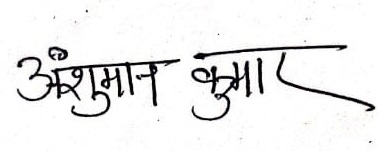 अंशुमान कुमार